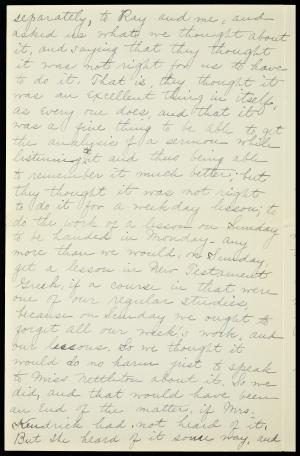 separately, to Ray and me, and
asked us what we thought about
it, and saying that they thought
it was not right for us to have
to do it. That is, they thought it
was an excellent thing in itself,
as every one does, and that it
was a fine thing to be able to get
the analysis of a sermon while
listening to it and thus being able
to remember it much better; but
they thought it was not right
to do it for a weekday lesson; to
do the work of a lesson on Sunday
to be handed in Monday - any
more than we would, on Sunday,
get a lesson in New Testament
Greek, if a course in that were
one of our regular studies,
because on Sunday we ought to
forget all our week's work, and
our lessons. So we thought it
would do no harm just to speak
to Miss Nettleton about it. So we
did, and that would have been
an end of the matter, if Mrs.
Kendrick had not heard of it.
But she heard of it some way, and